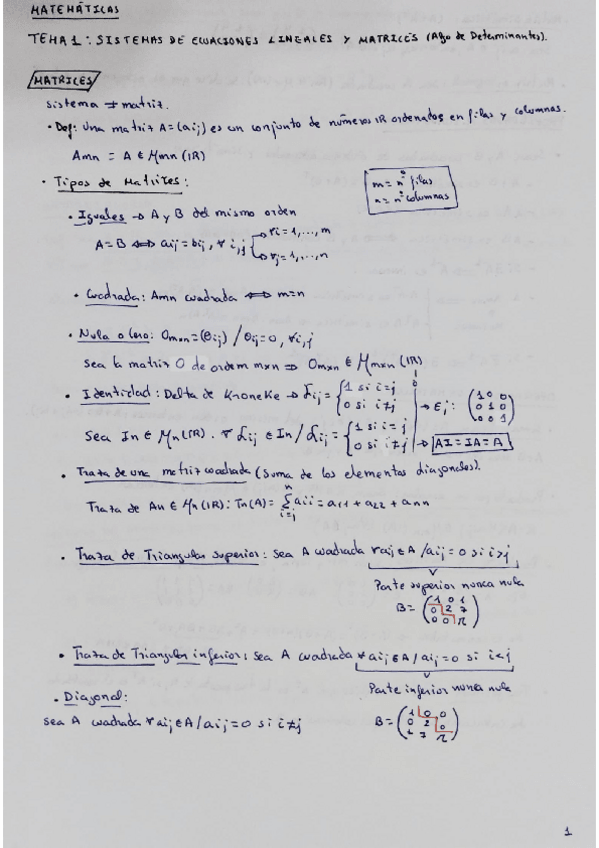 MATEMÁTICAS
TEMA 1: SISTEMAS DE ECUACIONES LINEALES Y MATRICES (Algo de Determinantes).
MATRICES
Sistema ≠ matriz.
• Def: Una matriz A=(aij) es un conjunto de números IR ordenados en filas y columnas.
Amn = A ∈ Mmn (IR)
m = nº filas
n = nº columnas
• Tipos de Matrices:
• Iguales → A y B del mismo orden
A=B ⟺ aij = bij, ∀ i,j
→ ∀i=1,...,m
→ ∀j=1,...,n
• Cuadrada: Amn cuadrada ⟺ m=n
• Nula o Cero: Omxn=(Oij) / Oij=0, ∀i,j
Sea la matriz O de orden mxn ⇒ Omxn ∈ Mmxn (IR)
• Identidad: Delta de Kroneke → δij = { 1 si i=j
0 si i≠j → Ej: (1 0 0
0 1 0
0 0 1)
Sea In ∈ Mn(IR). ∀ δij ∈ In / δij = { 1 si i=j
0 si i≠j → AI = IA = A
• Traza de una matriz cuadrada (suma de los elementos diagonales).
Traza de An ∈ Mn (IR): Tn(A) = Σ aii = a11 + a22 + ann
• Traza de Triangular superior: sea A cuadrada ∀ aij ∈ A / aij = 0 si i>j
Parte superior nunca nula
B = (1 0 1
0 2 7
0 0 π)
• Traza de Triangular inferior: sea A cuadrada ∀ aij ∈ A / aij = 0 si i<j
Parte inferior nunca nula
• Diagonal:
sea A cuadrada ∀ aij ∈ A / aij = 0 si i≠j
B = (1 0 0
0 2 0
1 7 π)
1